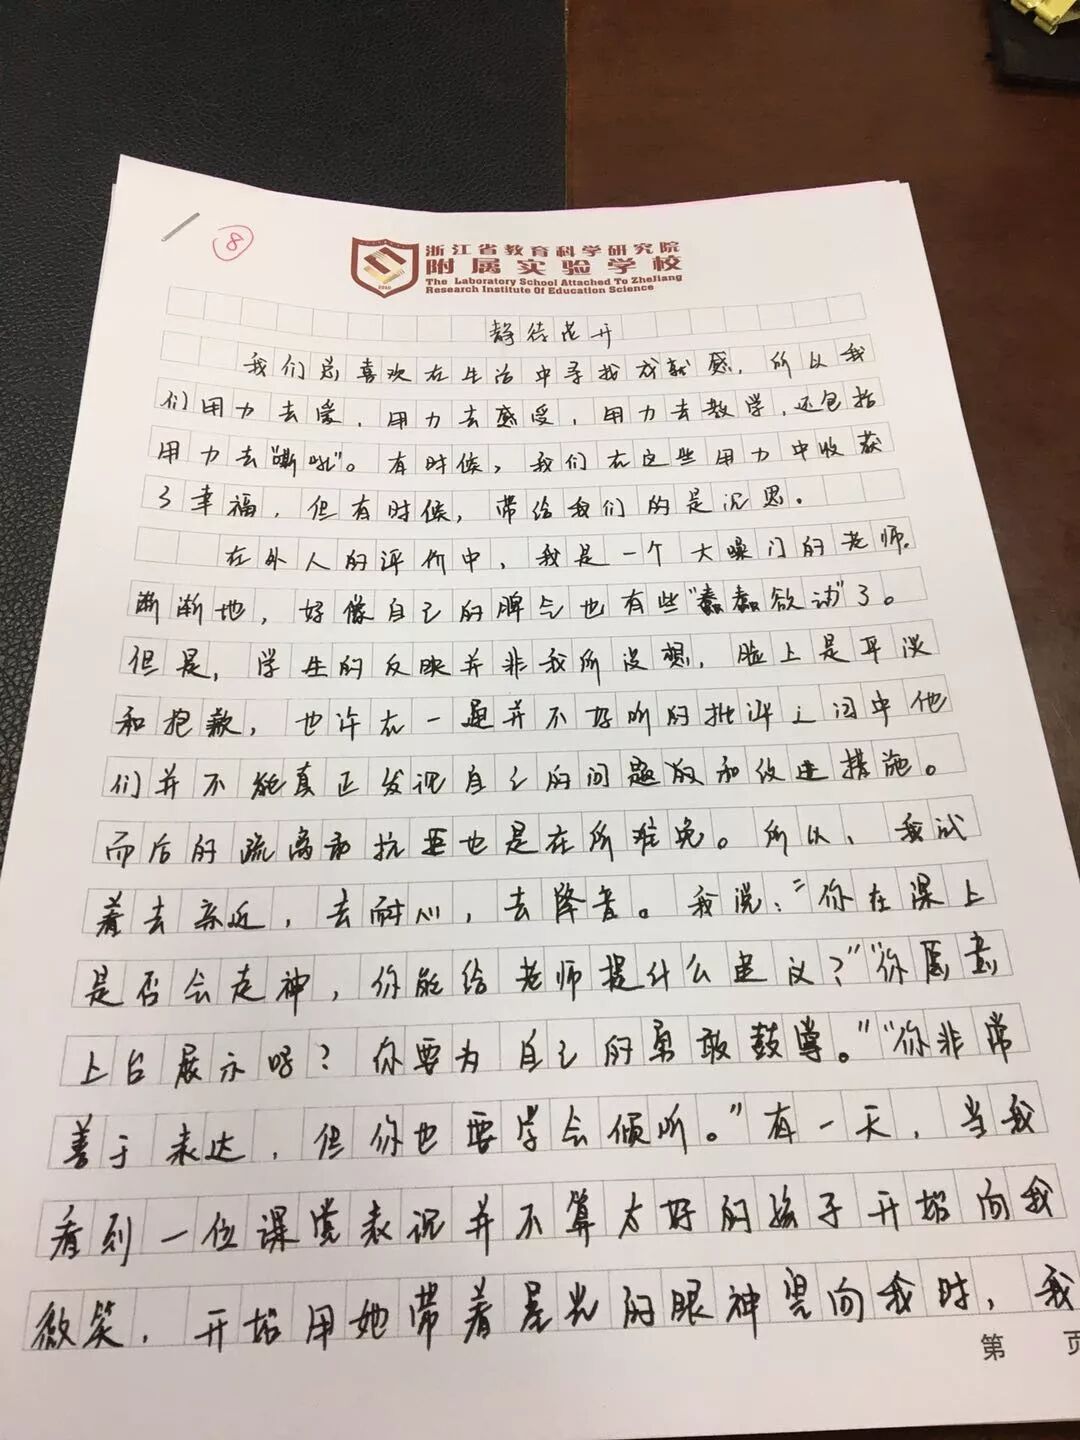 8
浙江省教育科学研究院
附属实验学校
The Laboratory School Attached To Zhejiang
Research Institute Of Education Science
静待花开
我们总喜欢在生活中寻找成就感，所以我
们用力去爱，用力去感受，用力去教学，还包括
用力去“嘶吼”。有时候，我们在这些用力中收获
了幸福，但有时候，带给我们的是沉思。
在外人的评价中，我是一个大嗓门的老师。
渐渐地，好像自己的脾气也有些“蠢蠢欲动”了。
但是，学生的反映并非我所设想，脸上是平淡
和抱歉，也许在一通并不好听的批评之词中他
们并不能真正发现自己的问题和改进措施。
而后的疏离和抗拒也是在所难免。所以，我试
着去亲近，去耐心，去降音。我说：“你在课上
是否会走神，你能给老师提什么建议？”“你愿意
上台展示呀？你要为自己的勇敢鼓掌。”“你非常
善于表达，但你也要学会倾听。”有一天，当我
看到一位课堂表现并不算太好的孩子开始向我
微笑，开始用她带着星光的眼神望向我时，我
第 页